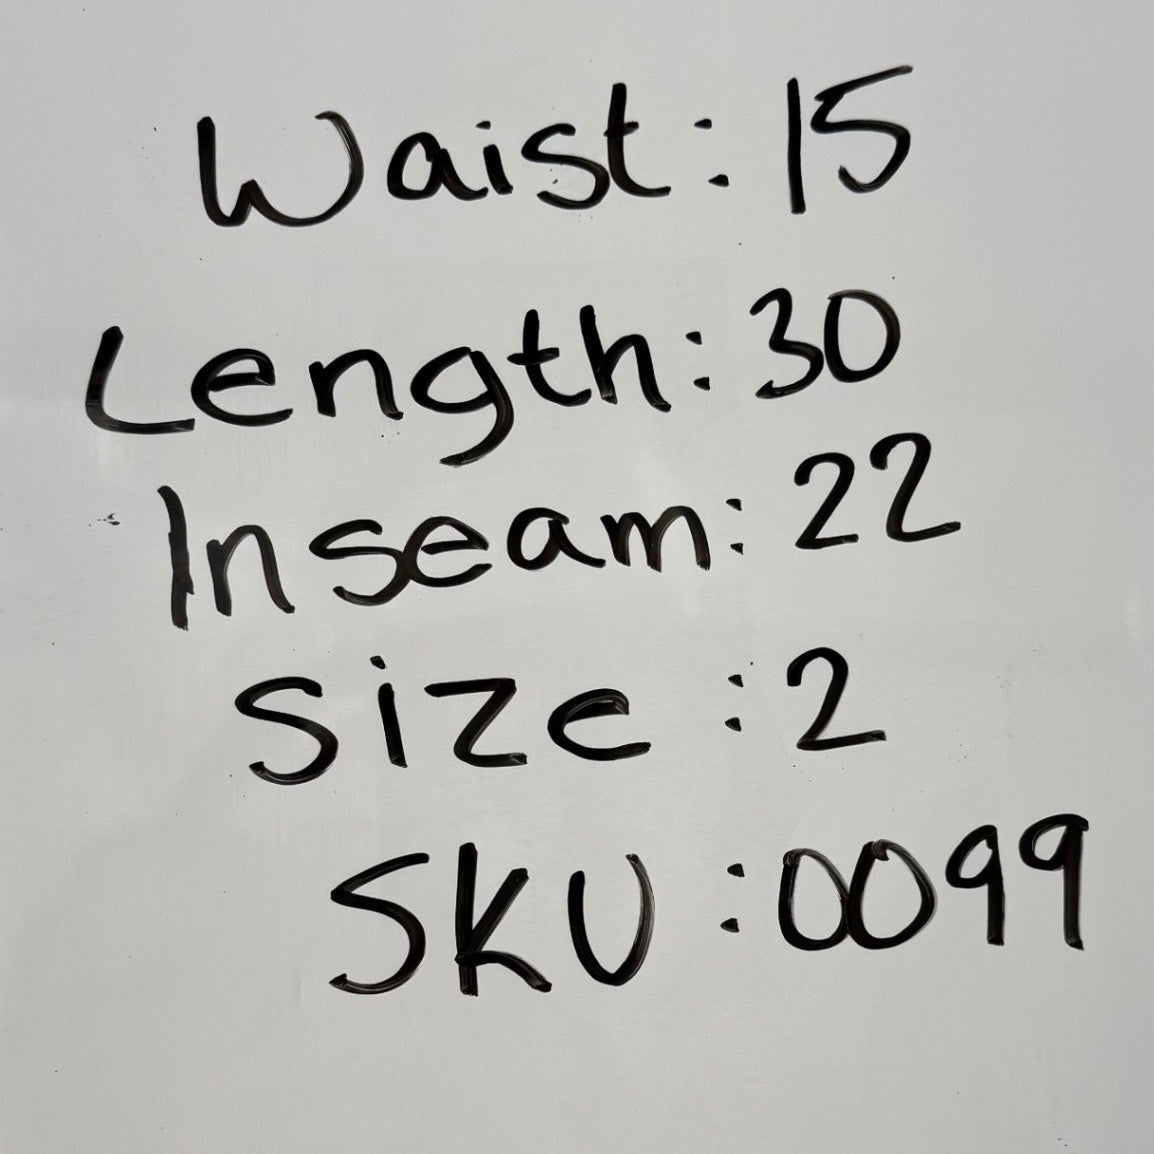 Waist: 15
Length: 30
Inseam: 22
Size: 2
SKU: 0099